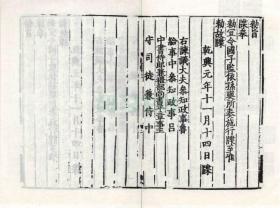 敕旨
牒奉
敕宜令國子監依孫奭所奏施行牒至准
敕故牒
乾興元年十一月十四日牒
右諫議大夫叅知政事魯
給事中叅知政事呂
中書侍郎兼禮部尚書平章事王
守司徒兼侍中